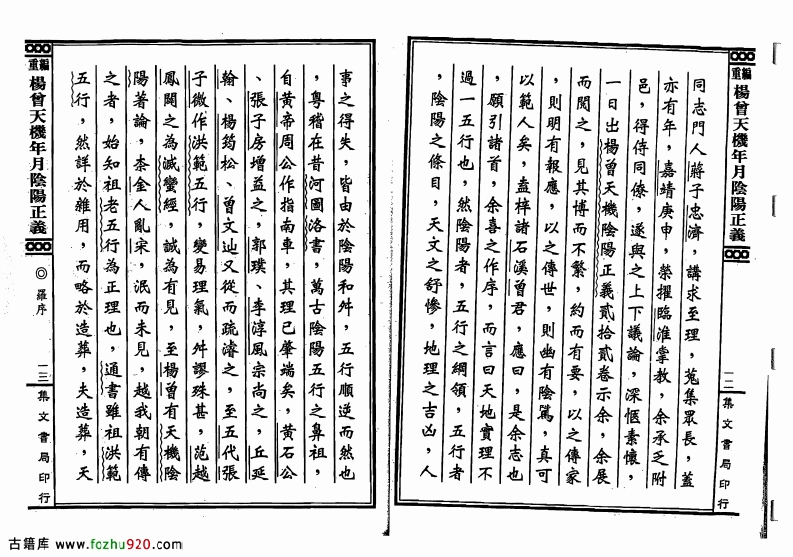 重編 楊曾天機年月陰陽正義
一二 集文書局印行
同志門人蔣子忠濟，講求至理，蒐集眾長，蓋
亦有年，嘉靖庚申，榮擢臨淮掌教，余承乏附
邑，得侍同僚，遂與之上下議論，深愜素懷，
一日出楊曾天機陰陽正義貳拾貳卷示余，余展
而閱之，見其博而不繁，約而有要，以之傳家
，則明有報應，以之傳世，則幽有陰騭，真可
以範人矣，盍梓諸石溪曾君，應曰，是余志也
，願引諸首，余喜之作序，而言曰天地實理不
過一五行也，然陰陽者，五行之綱領，五行者
，陰陽之條目，天文之舒慘，地理之吉凶，人
事之得失，皆由於陰陽和舛，五行順逆而然也
，粵稽在昔河圖洛書，萬古陰陽五行之鼻祖，
自黃帝周公作指南車，其理已肇端矣，黃石公
、張子房增益之，郭璞、李淳風宗尚之，丘延
翰、楊筠松、曾文辿又從而疏濬之，至五代張
子微作洪範五行，變易理氣，舛謬殊甚，范越
鳳闢之為滅蠻經，誠為有見，至楊曾有天機陰
陽著論，柰金人亂宋，泯而未見，越我朝有傳
之者，始知祖老五行為正理也，通書雖祖洪範
五行，然詳於雜用，而略於造葬，夫造葬，天
重編 楊曾天機年月陰陽正義
◎羅序
一三 集文書局印行
古籍库 www.fozhu920.com